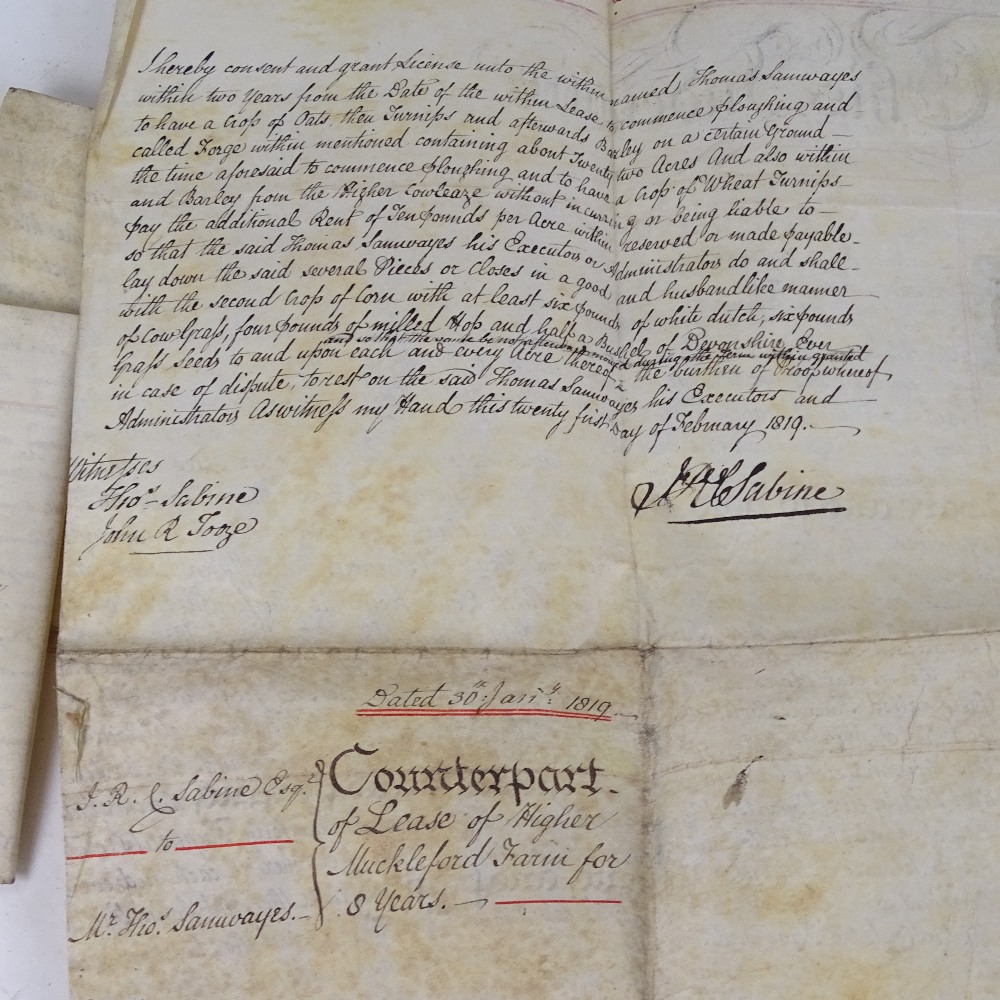 I hereby consent and grant License unto the within named Thomas Samwayes
within two Years from the Date of the within Lease to commence ploughing and
to have a Crop of Oats, then Turnips and afterwards Barley on a certain Ground —
called Forge within mentioned containing about Twenty two Acres And also within
the time aforesaid to commence ploughing and to have a Crop of Wheat Turnips —
and Barley from the Higher Cowleaze without incurring or being liable to —
pay the additional Rent of Ten pounds per Acre within reserved or made payable —
so that the said Thomas Samwayes his Executors or Administrators do and shall —
lay down the said several Pieces or Closes in a good and husbandlike manner
with the second Crop of Corn with at least six pounds of white dutch, six pounds
of Cow Grass, four pounds of milled Hop and half a Bushel of Devonshire Ever
and so that the same be not afterwards mowed during the term within granted
Grass Seeds to and upon each and every Acre thereof — the burthen of Proof whereof
in case of dispute, to rest on the said Thomas Samwayes his Executors and
Administrators As witness my Hand this twenty first Day of February 1819. —
Witnesses
Thos. Sabine
John R Tooze
Sabine
Dated 30th. Jan'y. 1819. —
J. R. C. Sabine Esqr.
to
Mr. Thos. Samwayes. —
Counterpart.
of Lease of Higher
Muckleford Farm for
8 Years. —